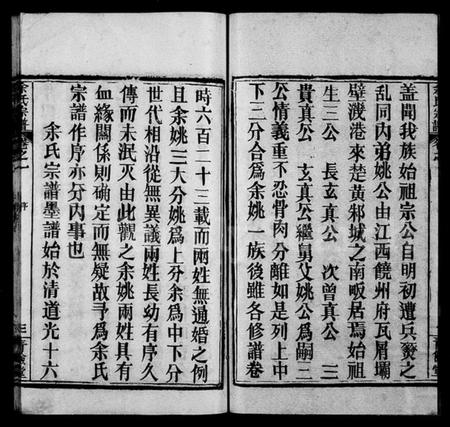 蓋聞我族始祖宗公自明初遭兵燹之
亂同內弟姚公由江西饒州府瓦屑壩
壁濺港來楚黃邾城之南畈居焉始祖
生三公 長玄真公 次曾真公 三
貴真公 玄真公繼舅父姚公為嗣二
公情義重不忍骨肉分離如是列上中
下三分合為余姚一族後雖各修譜卷
時六百二十三載而兩姓無通婚之例
且余姚三大分姚為上分余為中下分
世代相沿從無異議兩姓長幼有序久
傳而未泯灭由此觀之余姚兩姓具有
血緣關係則确定而無疑故予為余氏
宗譜作序亦分內事也
余氏宗譜墨譜始於清道光十六
余氏宗譜
卷之一
三